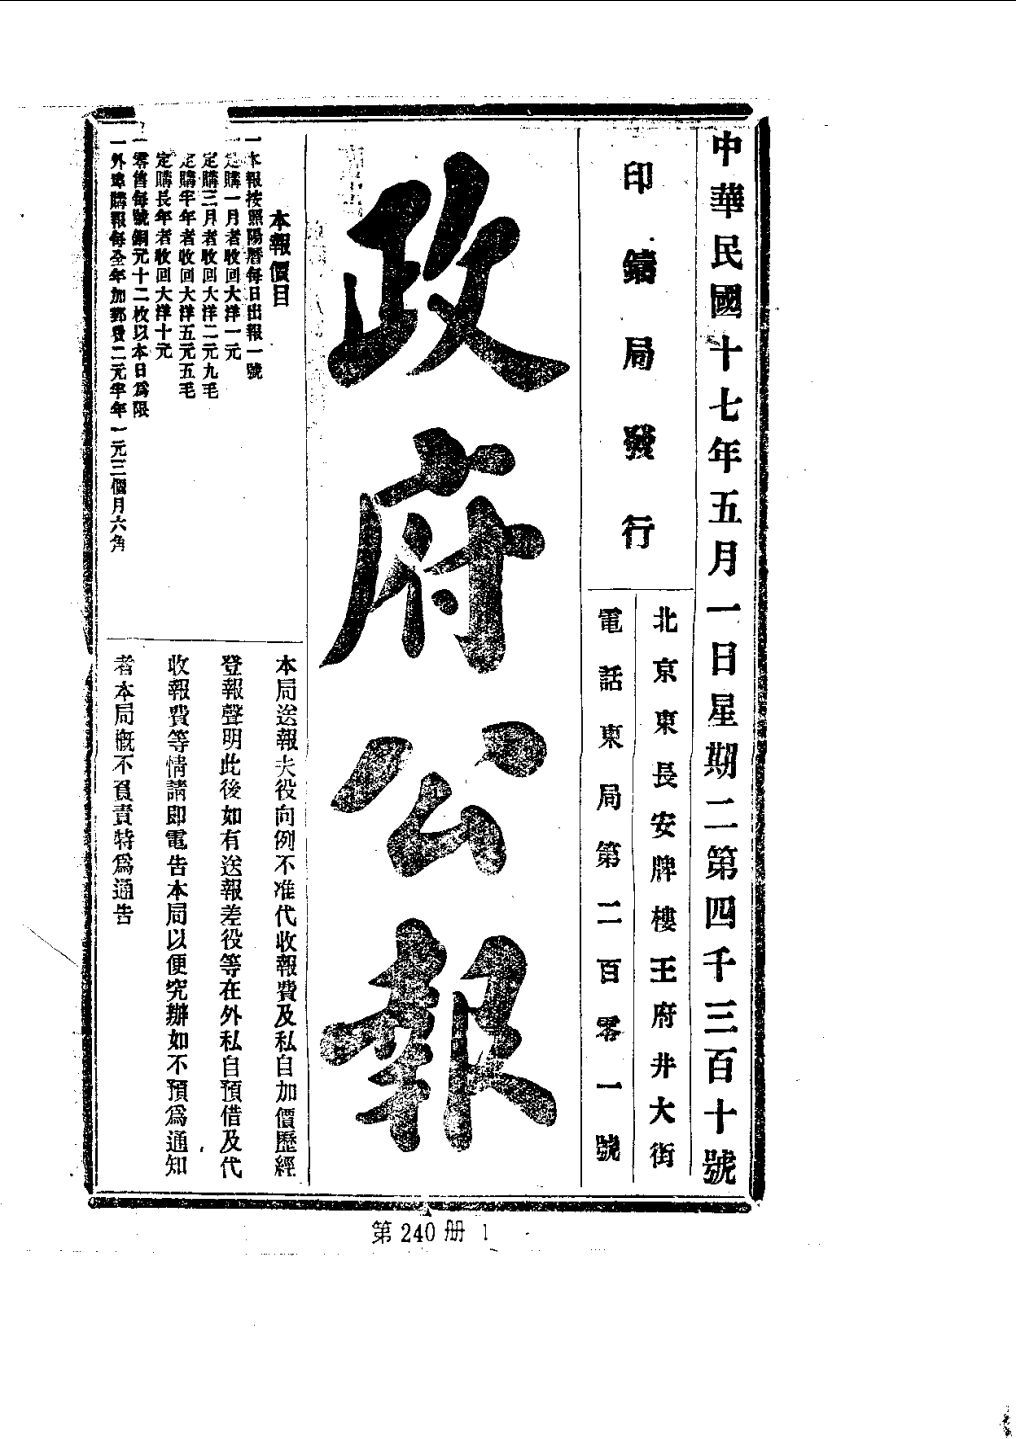 中華民國十七年五月一日星期二第四千三百十號
印鑄局發行
北京東長安牌樓王府井大街
電話東局第二百零一號
政府公報
本報價目
一本報按照陽曆每日出報一號
一定購一月者收回大洋一元
定購三月者收回大洋二元九毛
定購半年者收回大洋五元五毛
定購長年者收回大洋十元
一零售每號銅元十二枚以本日爲限
一外埠購報每全年加郵費二元半年一元三個月六角
本局送報夫役向例不准代收報費及私自加價歷經
登報聲明此後如有送報差役等在外私自預借及代
收報費等情請即電告本局以便究辦如不預爲通知
者本局概不負責特爲通告
第 240 册 1